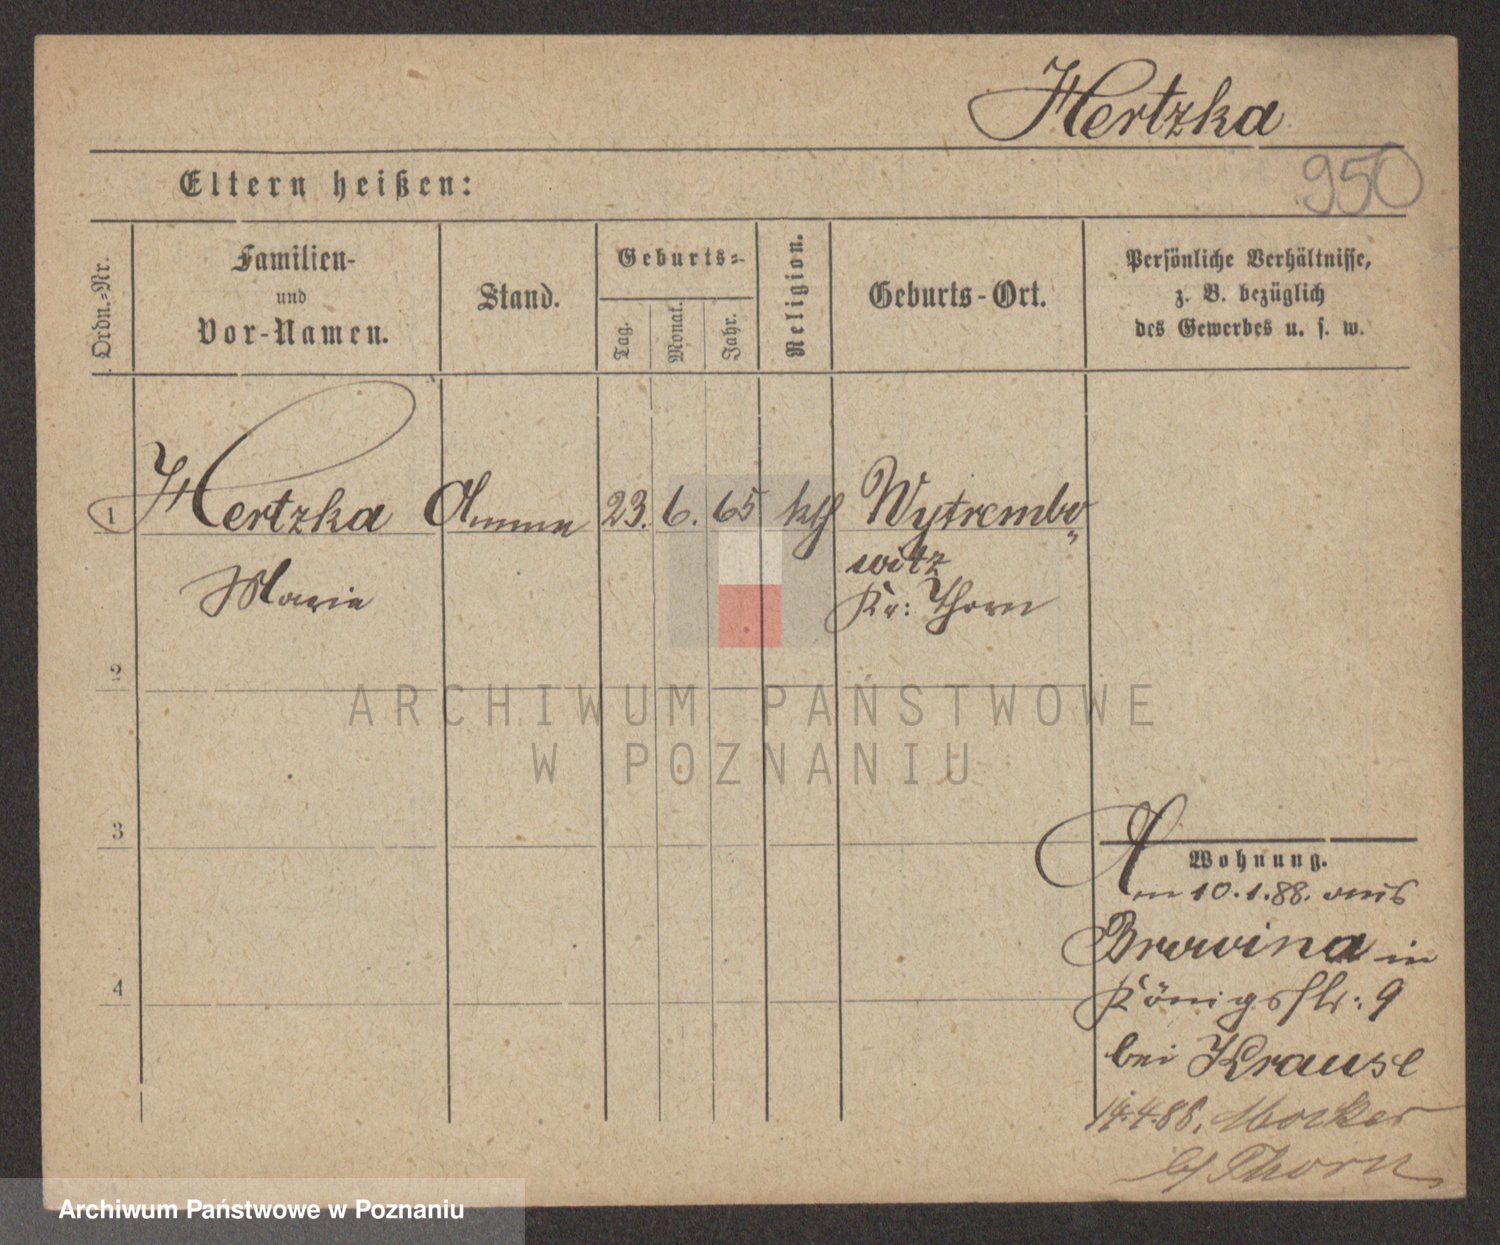 Hertzka
950
Eltern heißen:
Ordn.-Nr.
Familien-
und
Vor-Namen.
Stand.
Geburts-
Tag.
Monat.
Jahr.
Religion.
Geburts-Ort.
Persönliche Verhältnisse,
z. B. bezüglich
des Gewerbes u. s. w.
1 Hertzka Amme 23. 6. 65 kth Wytrembo„
Marie witz
Kr: Thorn
2
ARCHIWUM PAŃSTWOWE
W POZNANIU
3
Wohnung.
Am 10.1.88. aus
Browina in
Königsstr: 9
bei Krause
14.4.88. Mocker
b/ Thorn
4
Archiwum Państwowe w Poznaniu